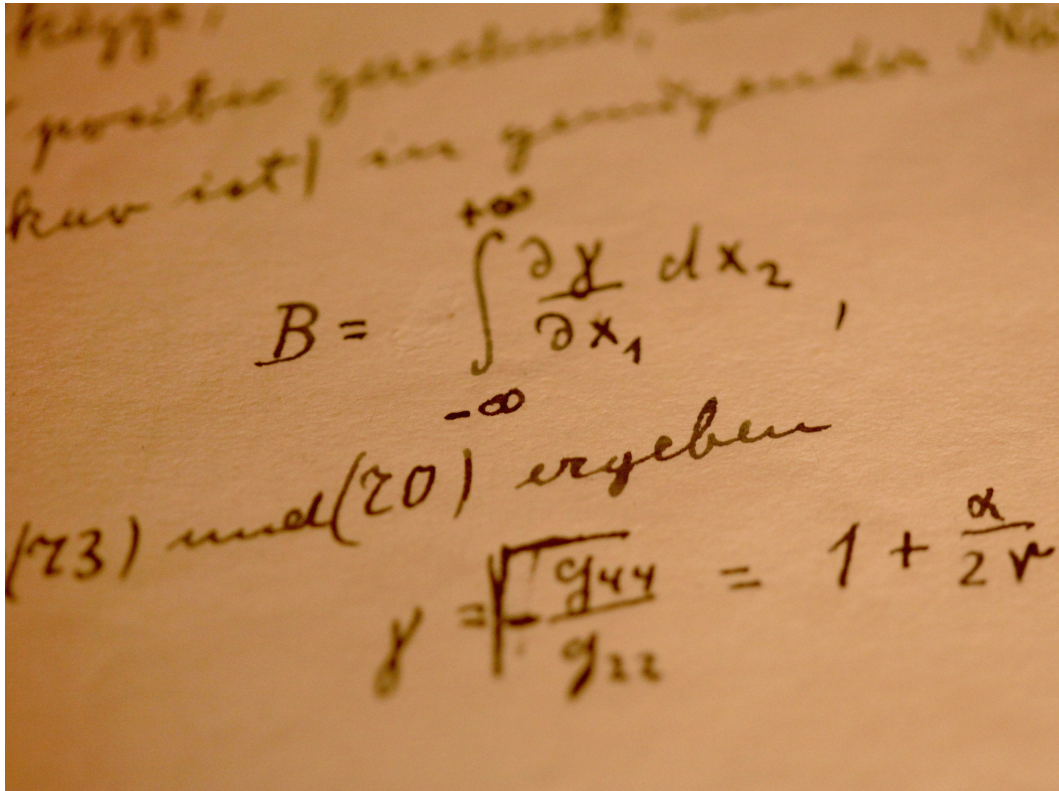 positiv gerechnet,
ist) in genügender
B = ∫_{-∞}^{+∞} ∂γ/∂x₁ dx₂ ,
(73) und (70) ergeben
γ = √(- g₄₄/g₂₂) = 1 + α/2r